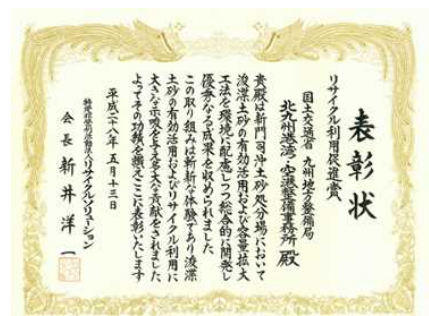 表彰状
リサイクル利用促進賞
国土交通省 九州地方整備局
北九州港湾・空港整備事務所 殿
貴殿は新門司沖土砂処分場において
浚渫土砂の有効活用および容量拡大
工法を環境に配慮しつつ総合的に開発し
優秀なる成果を収められました
この取り組みは斬新な体験であり浚渫
土砂の有効活用およびリサイクル利用に
大きな示唆を与え多大な貢献をされました
よってその功績を顕えここに表彰いたします
平成二十八年 五月十三日
特定非営利活動法人リサイクルソリューション
会長 新井洋一